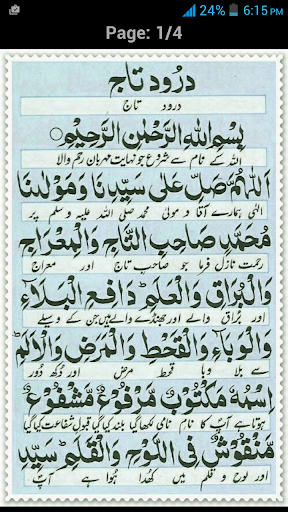 24% 6:15 PM
Page: 1/4
درود تاج
درود تاج
بِسْمِ اللهِ الرَّحْمٰنِ الرَّحِيْمِ
اللہ کے نام سے شروع جو نہایت مہربان رحم والا
اَللّٰهُمَّ صَلِّ عَلٰى سَيِّدِنَا وَمَوْلٰنَا
الٰہی ہمارے آقا و مولیٰ محمد صلی اللہ علیہ وسلم پر
مُحَمَّدٍ صَاحِبِ التَّاجِ وَالْمِعْرَاجِ
رحمت نازل فرما جو صاحب تاج اور معراج
وَالْبُرَاقِ وَالْعَلَمِ دَافِعِ الْبَلَاءِ
اور براق والے اور جھنڈے والے ہیں جن کے وسیلے
وَالْوَبَاءِ وَالْقَحْطِ وَالْمَرَضِ وَالْاَلَمِ
سے بلا وبا قحط مرض اور دکھ دور
اِسْمُهٗ مَكْتُوْبٌ مَّرْفُوْعٌ مَّشْفُوْعٌ
ہوتا ہے آپ کا نام نامی لکھا گیا بلند کیا گیا قبول شفاعت کیا گیا
مَّنْقُوْشٌ فِى اللَّوْحِ وَالْقَلَمِ سَيِّدِ
اور لوح و قلم میں کھدا ہوا ہے آپ